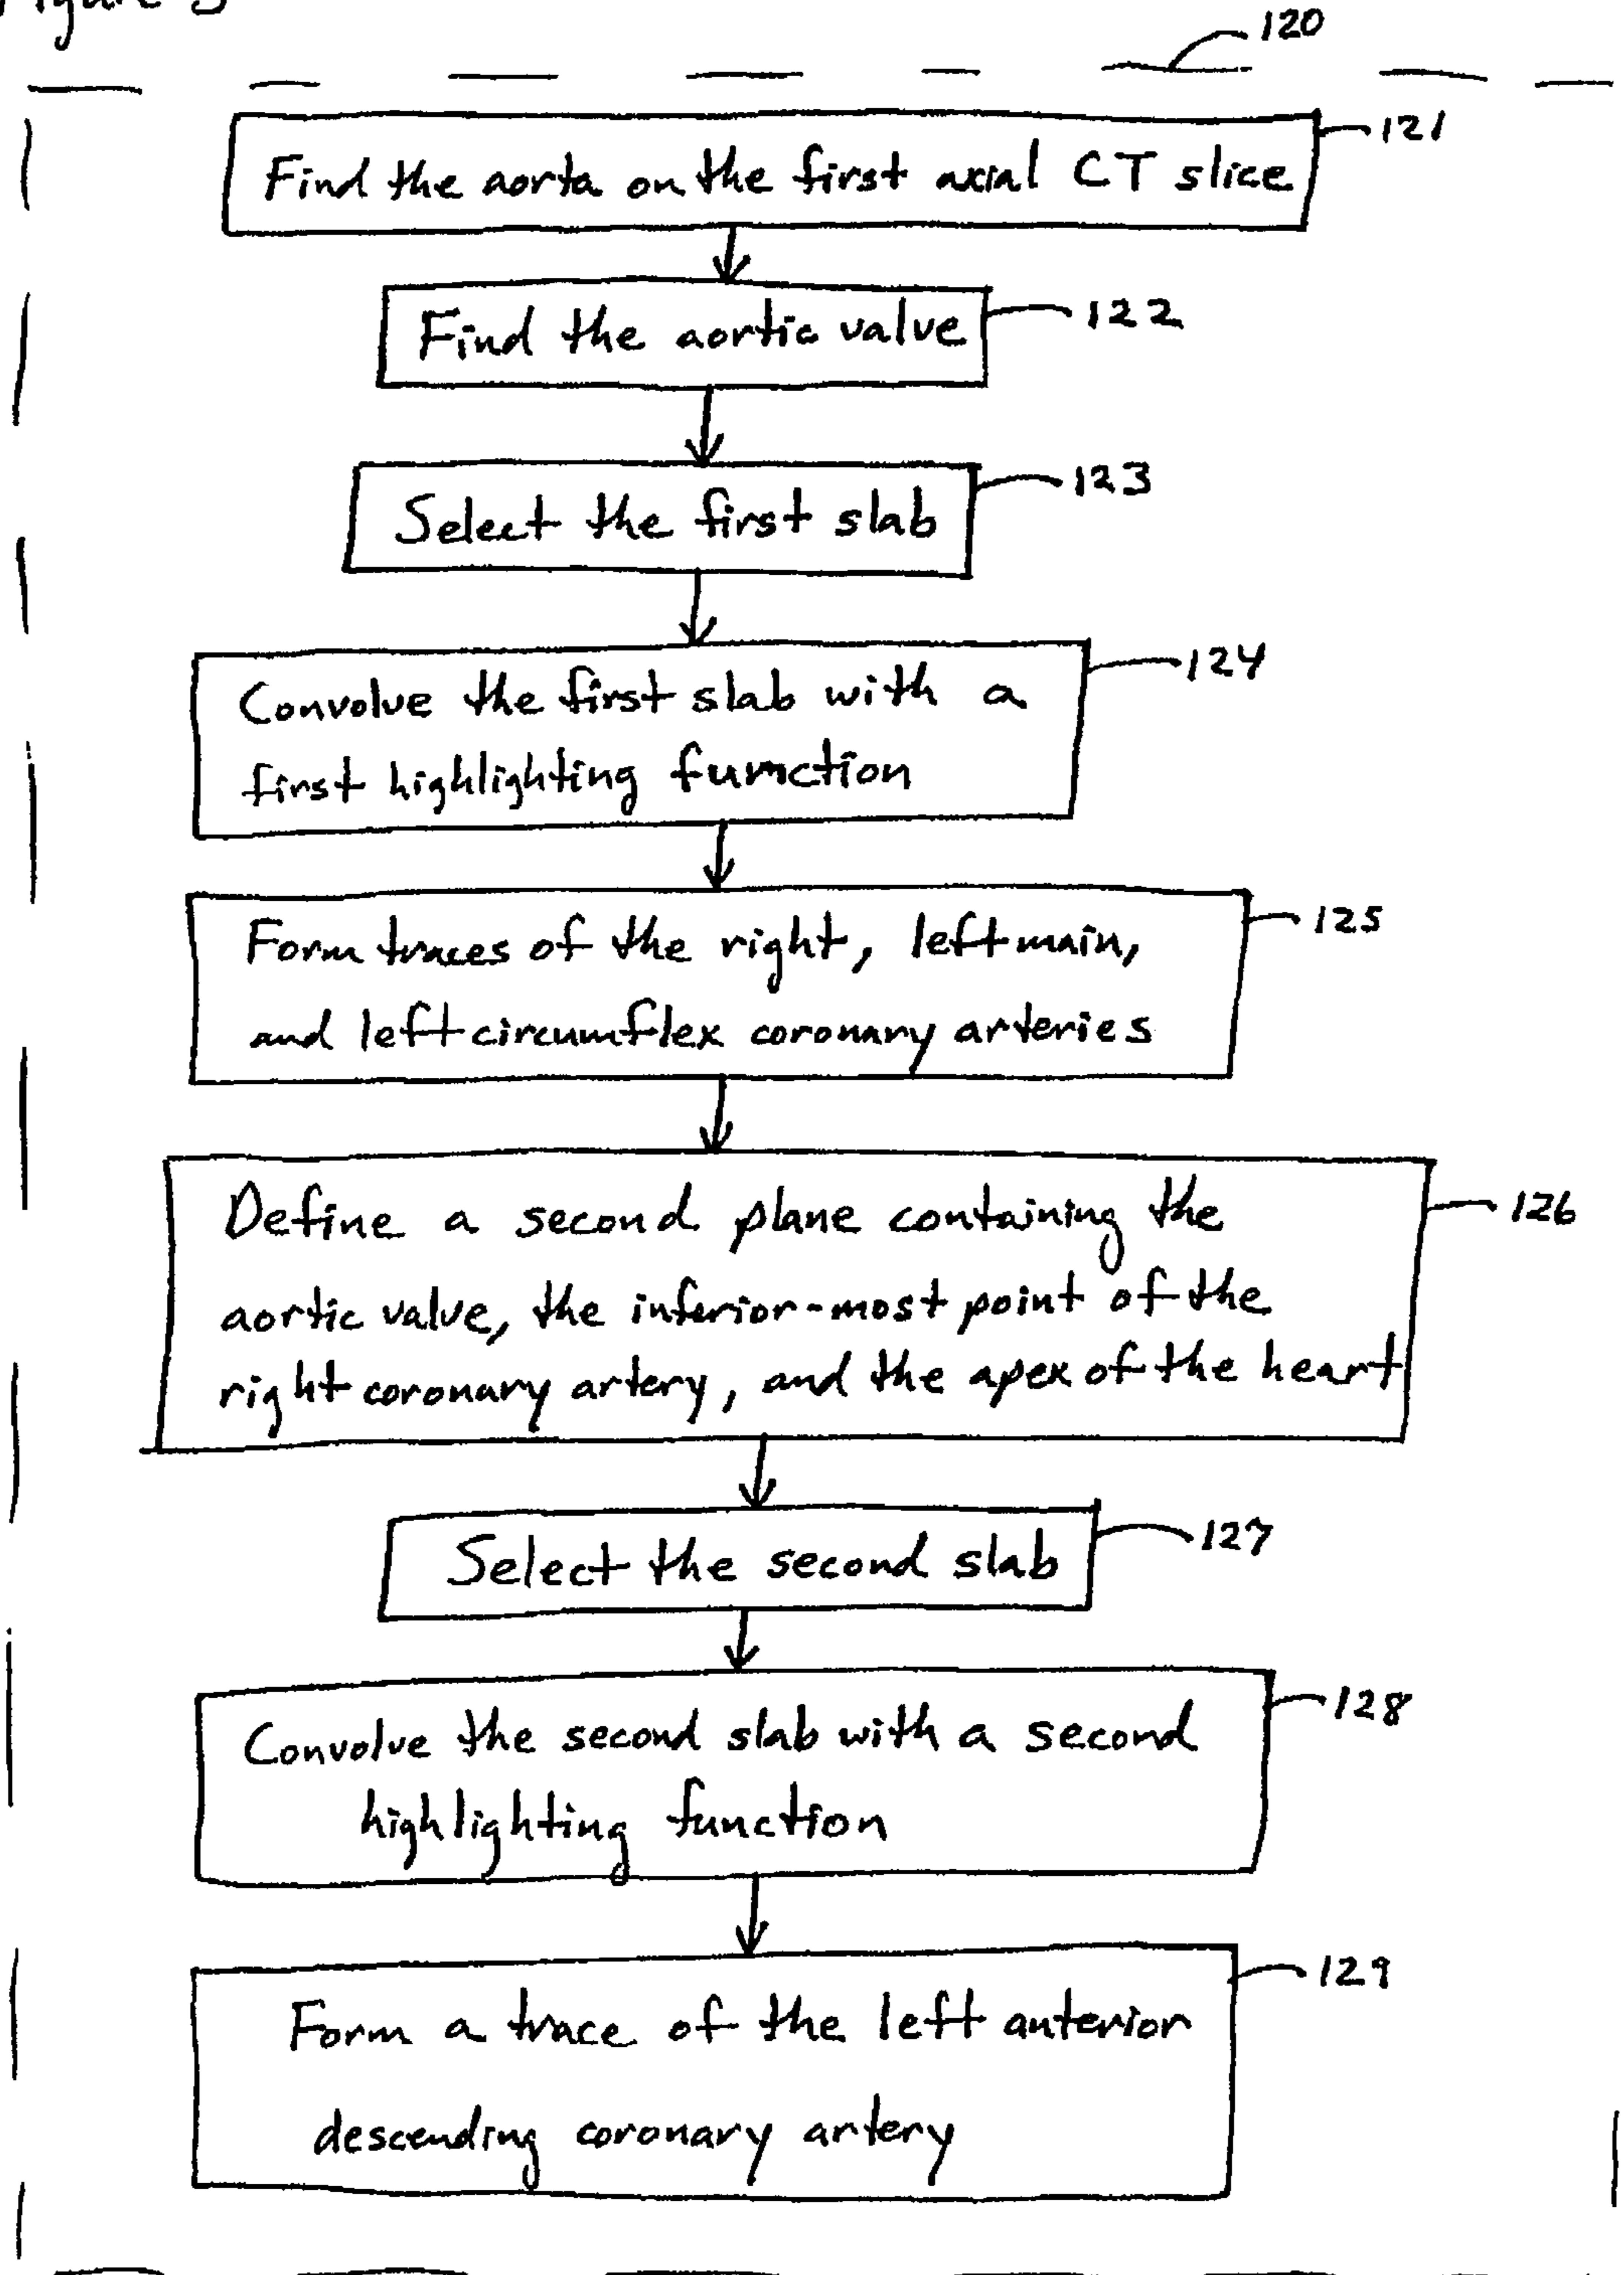 120
Find the aorta on the first axial CT slice
121
Find the aortic valve
122
Select the first slab
123
Convolve the first slab with a
first highlighting function
124
Form traces of the right, left main,
and left circumflex coronary arteries
125
Define a second plane containing the
aortic valve, the inferior-most point of the
right coronary artery, and the apex of the heart
126
Select the second slab
127
Convolve the second slab with a second
highlighting function
128
Form a trace of the left anterior
descending coronary artery
129